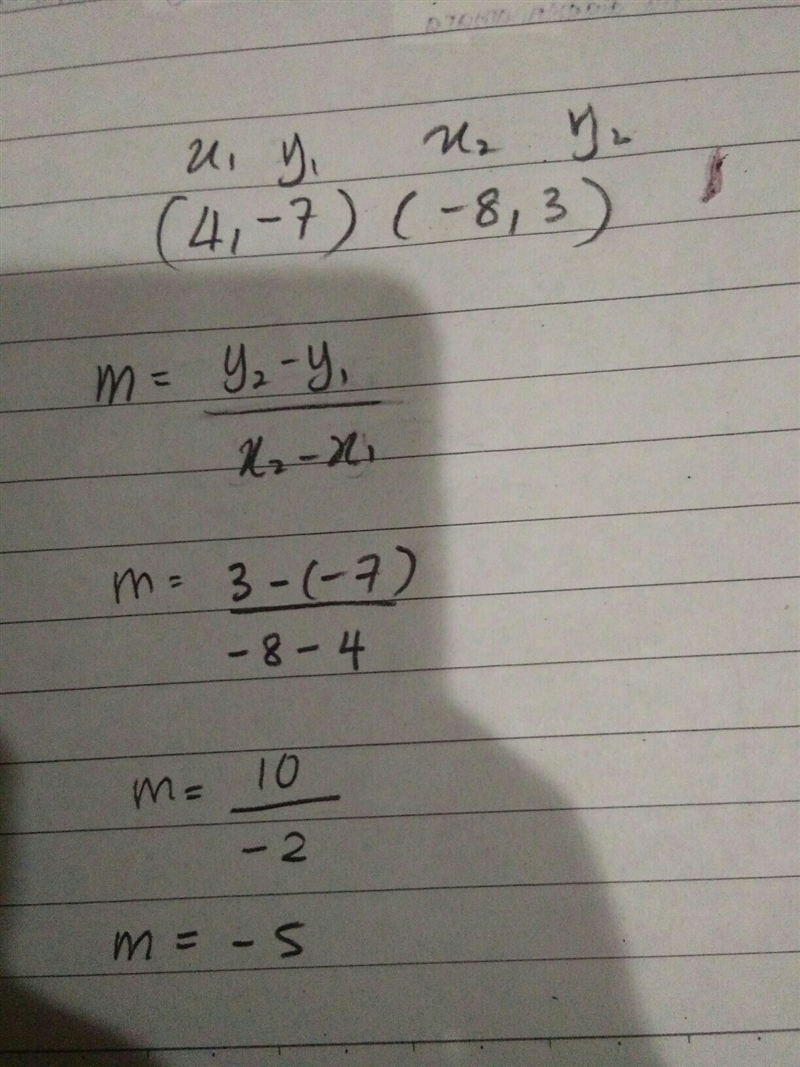 x₁ y₁ x₂ y₂
(4, -7) (-8, 3)
m = y₂ - y₁
x₂ - x₁
m = 3 - (-7)
-8 - 4
m = 10
-2
m = -5